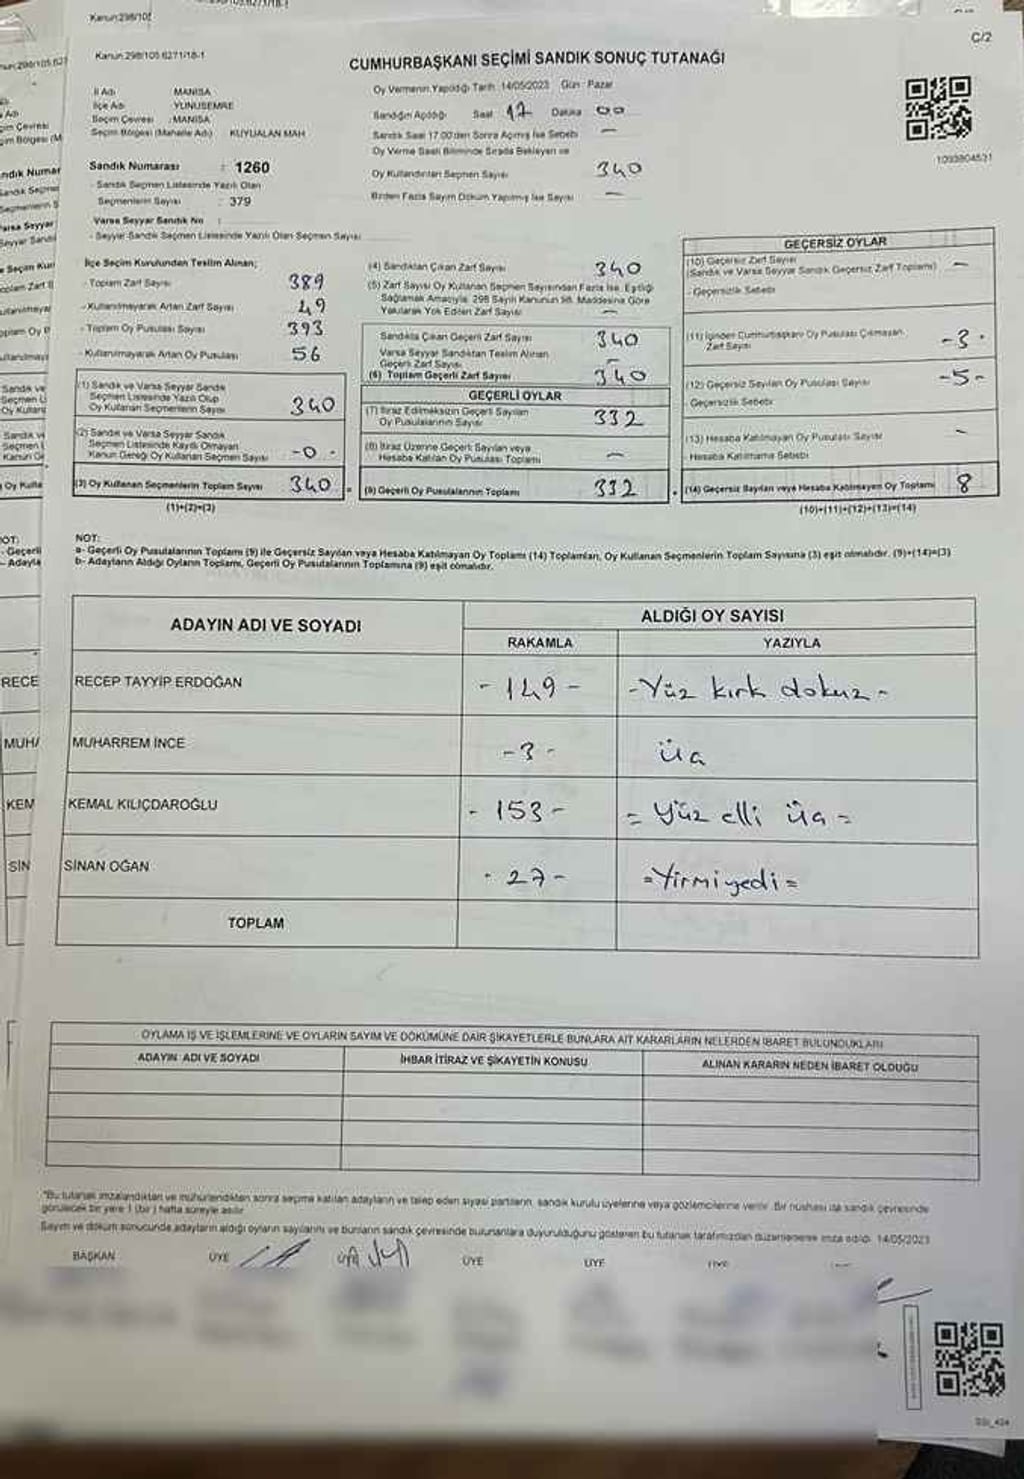 Kanun:298/105
Kanun:298/105.6271/18-1
C/2
CUMHURBAŞKANI SEÇİMİ SANDIK SONUÇ TUTANAĞI
İl Adı MANİSA
İlçe Adı YUNUSEMRE
Seçim Çevresi : MANİSA
Seçim Bölgesi (Mahalle Adı) KUYUALAN MAH
Oy Vermenin Yapıldığı Tarih 14/05/2023 Gün : Pazar
Sandığın Açıldığı Saat 17 Dakika 00
Sandık Saat 17.00'den Sonra Açılmış İse Sebebi —
Oy Verme Saati Bitiminde Sırada Bekleyen ve
Oy Kullandırılan Seçmen Sayısı 340
Birden Fazla Sayım Döküm Yapılmış İse Sayısı —
1093804531
Sandık Numarası : 1260
- Sandık Seçmen Listesinde Yazılı Olan
Seçmenlerin Sayısı : 379
Varsa Seyyar Sandık No :
- Seyyar Sandık Seçmen Listesinde Yazılı Olan Seçmen Sayısı
İlçe Seçim Kurulundan Teslim Alınan;
- Toplam Zarf Sayısı 389
- Kullanılmayarak Artan Zarf Sayısı 49
- Toplam Oy Pusulası Sayısı 393
- Kullanılmayarak Artan Oy Pusulası 56
(1) Sandık ve Varsa Seyyar Sandık
Seçmen Listesinde Yazılı Olup
Oy Kullanan Seçmenlerin Sayısı 340
(2) Sandık ve Varsa Seyyar Sandık
Seçmen Listesinde Kayıtlı Olmayan
Kanun Gereği Oy Kullanan Seçmen Sayısı -0-
(3) Oy Kullanan Seçmenlerin Toplam Sayısı 340
(1)+(2)=(3)
(4) Sandıktan Çıkan Zarf Sayısı 340
(5) Zarf Sayısı Oy Kullanan Seçmen Sayısından Fazla İse, Eşitliği
Sağlamak Amacıyla, 298 Sayılı Kanunun 98. Maddesine Göre
Yakılarak Yok Edilen Zarf Sayısı —
Sandıkta Çıkan Geçerli Zarf Sayısı 340
Varsa Seyyar Sandıktan Teslim Alınan
Geçerli Zarf Sayısı —
(6) Toplam Geçerli Zarf Sayısı 340
GEÇERLİ OYLAR
(7) İtiraz Edilmeksizin Geçerli Sayılan
Oy Pusulalarının Sayısı 332
(8) İtiraz Üzerine Geçerli Sayılan veya
Hesaba Katılan Oy Pusulası Toplamı —
(9) Geçerli Oy Pusulalarının Toplamı 332
GEÇERSİZ OYLAR
(10) Geçersiz Zarf Sayısı
(Sandık ve Varsa Seyyar Sandık Geçersiz Zarf Toplamı) —
- Geçersizlik Sebebi
(11) İçinden Cumhurbaşkanı Oy Pusulası Çıkmayan
Zarf Sayısı -3-
(12) Geçersiz Sayılan Oy Pusulası Sayısı -5-
- Geçersizlik Sebebi
(13) Hesaba Katılmayan Oy Pusulası Sayısı —
- Hesaba Katılmama Sebebi
(14) Geçersiz Sayılan veya Hesaba Katılmayan Oy Toplamı 8
(10)+(11)+(12)+(13)=(14)
NOT:
a- Geçerli Oy Pusulalarının Toplamı (9) ile Geçersiz Sayılan veya Hesaba Katılmayan Oy Toplamı (14) Toplamları, Oy Kullanan Seçmenlerin Toplam Sayısına (3) eşit olmalıdır. (9)+(14)=(3)
b- Adayların Aldığı Oyların Toplamı, Geçerli Oy Pusulalarının Toplamına (9) eşit olmalıdır.
ADAYIN ADI VE SOYADI
ALDIĞI OY SAYISI
RAKAMLA YAZIYLA
RECEP TAYYİP ERDOĞAN - 149 - -Yüz kırk dokuz-
MUHARREM İNCE -3- üç
KEMAL KILIÇDAROĞLU - 153 - = Yüz elli üç =
SİNAN OĞAN - 27 - =Yirmi yedi=
TOPLAM
OYLAMA İŞ VE İŞLEMLERİNE VE OYLARIN SAYIM VE DÖKÜMÜNE DAİR ŞİKAYETLERLE BUNLARA AİT KARARLARIN NELERDEN İBARET BULUNDUKLARI
ADAYIN ADI VE SOYADI İHBAR İTİRAZ VE ŞİKAYETİN KONUSU ALINAN KARARIN NEDEN İBARET OLDUĞU
"Bu tutanak imzalandıktan ve mühürlendikten sonra seçime katılan adayların ve talep eden siyasi partilerin, sandık kurulu üyelerine veya gözlemcilerine verilir. Bir nüshası da sandık çevresinde
görülecek bir yere 1 (bir) hafta süreyle asılır.
Sayım ve döküm sonucunda adayların aldığı oyların sayılarını ve bunların sandık çevresinde bulunanlara duyurulduğunu gösteren bu tutanak tarafımızdan düzenlenerek imza edildi. 14/05/2023
BAŞKAN ÜYE ÜYE ÜYE ÜYE ÜYE